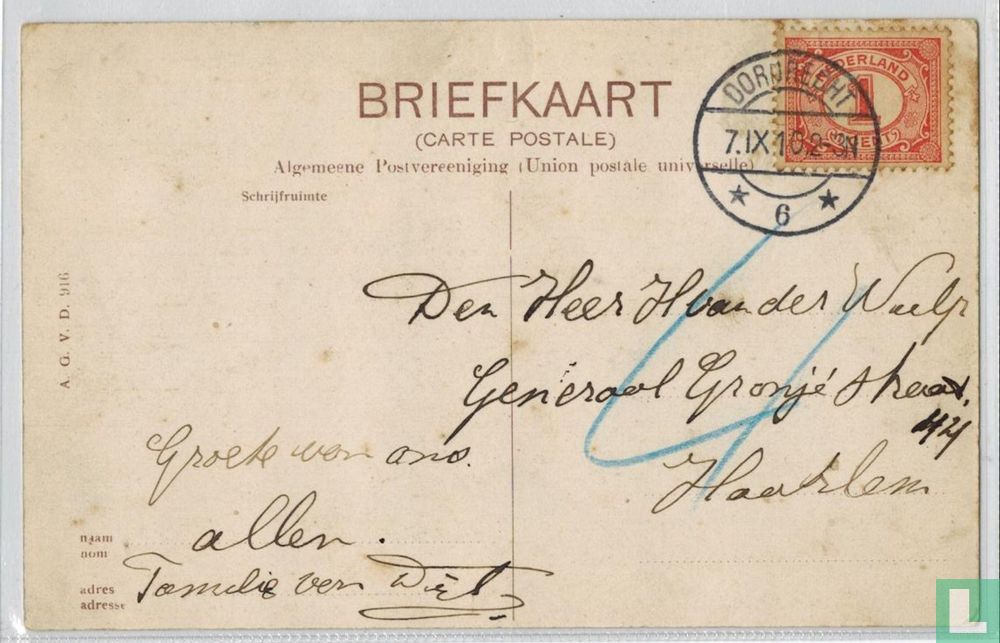 BRIEFKAART
(CARTE POSTALE)
Algemeene Postvereeniging (Union postale universelle)
Schrijfruimte
NEDERLAND
1
CENT
DORDRECHT
7.IX.10.2-3N
6
A. G. V. D. 916
Den Heer H van der Wulp
Generaal Cronjé straat
44
Haarlem
4
Groete van ons
allen.
Familie van Diel
naam
nom
adres
adresse
L